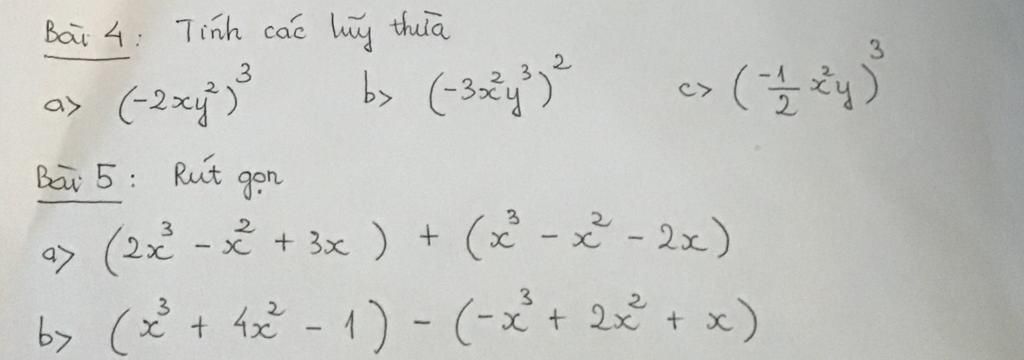 Bài 4: Tính các luỹ thừa
a> (-2xy²)³ b> (-3x²y³)² c> (-1/2 x²y)³
Bài 5: Rút gọn
a> (2x³ - x² + 3x) + (x³ - x² - 2x)
b> (x³ + 4x² - 1) - (-x³ + 2x² + x)